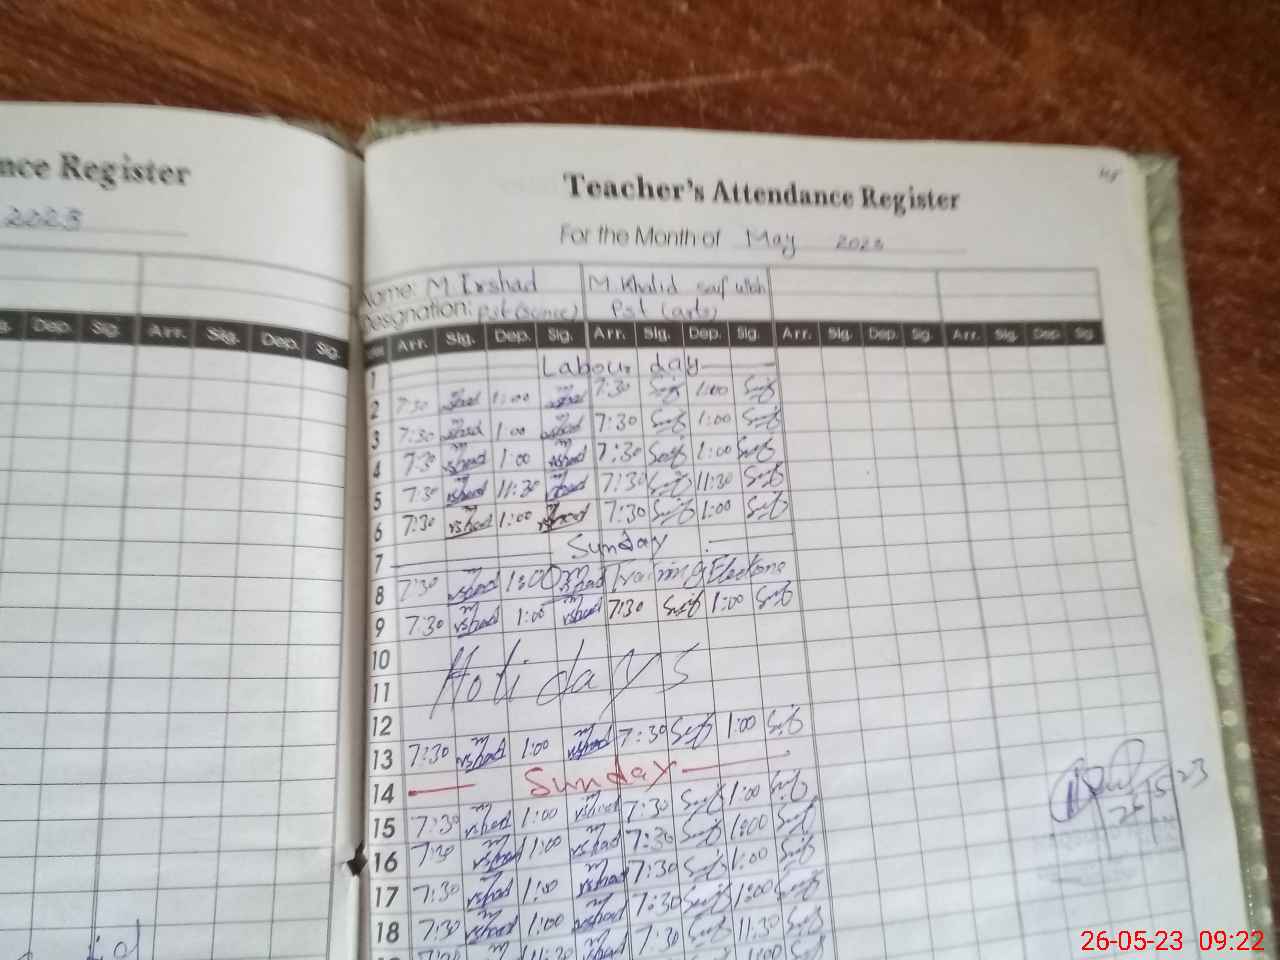 nce Register
2023
Dep. Sig. Arr. Sig. Dep. Sig.
Teacher's Attendance Register
For the Month of May 2023
Name: M Irshad M. Khalid saif ullah
Designation: Pst (Science) Pst (arts)
Arr. Sig. Dep. Sig. Arr. Sig. Dep. Sig. Arr. Sig. Dep. Sig. Arr. Sig. Dep. Sig
1 Labour day
2 7:30 1:00 7:30 Saif 1:00 Saif
3 7:30 1:00 7:30 Saif 1:00 Saif
4 7:30 1:00 7:30 Saif 1:00 Saif
5 7:30 11:30 7:30 Saif 11:30 Saif
6 7:30 1:00 7:30 Saif 1:00 Saif
7 Sunday
8 7:30 1:00 Training Elections
9 7:30 1:00 7:30 Saif 1:00 Saif
10
Holidays
11
12
13 7:30 1:00 7:30 Saif 1:00 Saif
14 Sunday
15 7:30 1:00 7:30 Saif 1:00 Saif
16 7:30 1:00 7:30 Saif 1:00 Saif
17 7:30 1:00 7:30 Saif 1:00 Saif
18 7:30 1:00 7:30 Saif 1:00 Saif
7:30 Saif 11:30 Saif
26-05-23 09:22